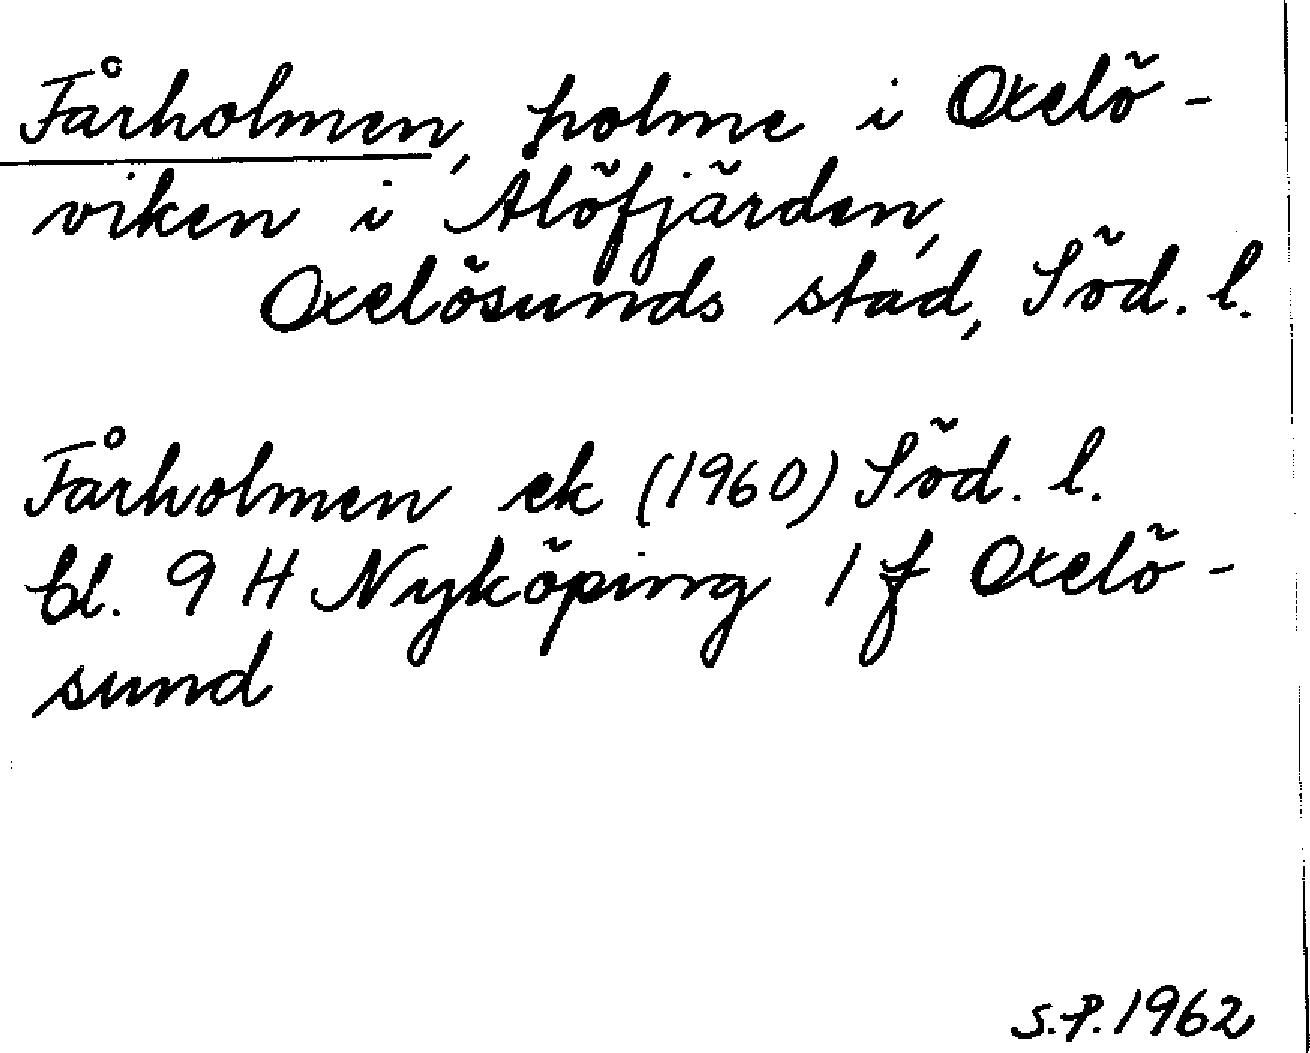 Fårholmen, holme i Oxelö-
viken i Älöfjärden,
Oxelösunds stad, Söd. l.
Fårholmen ek (1960) Söd. l.
bl. 9 H Nyköping 1 f Oxelö-
sund
S.P. 1962